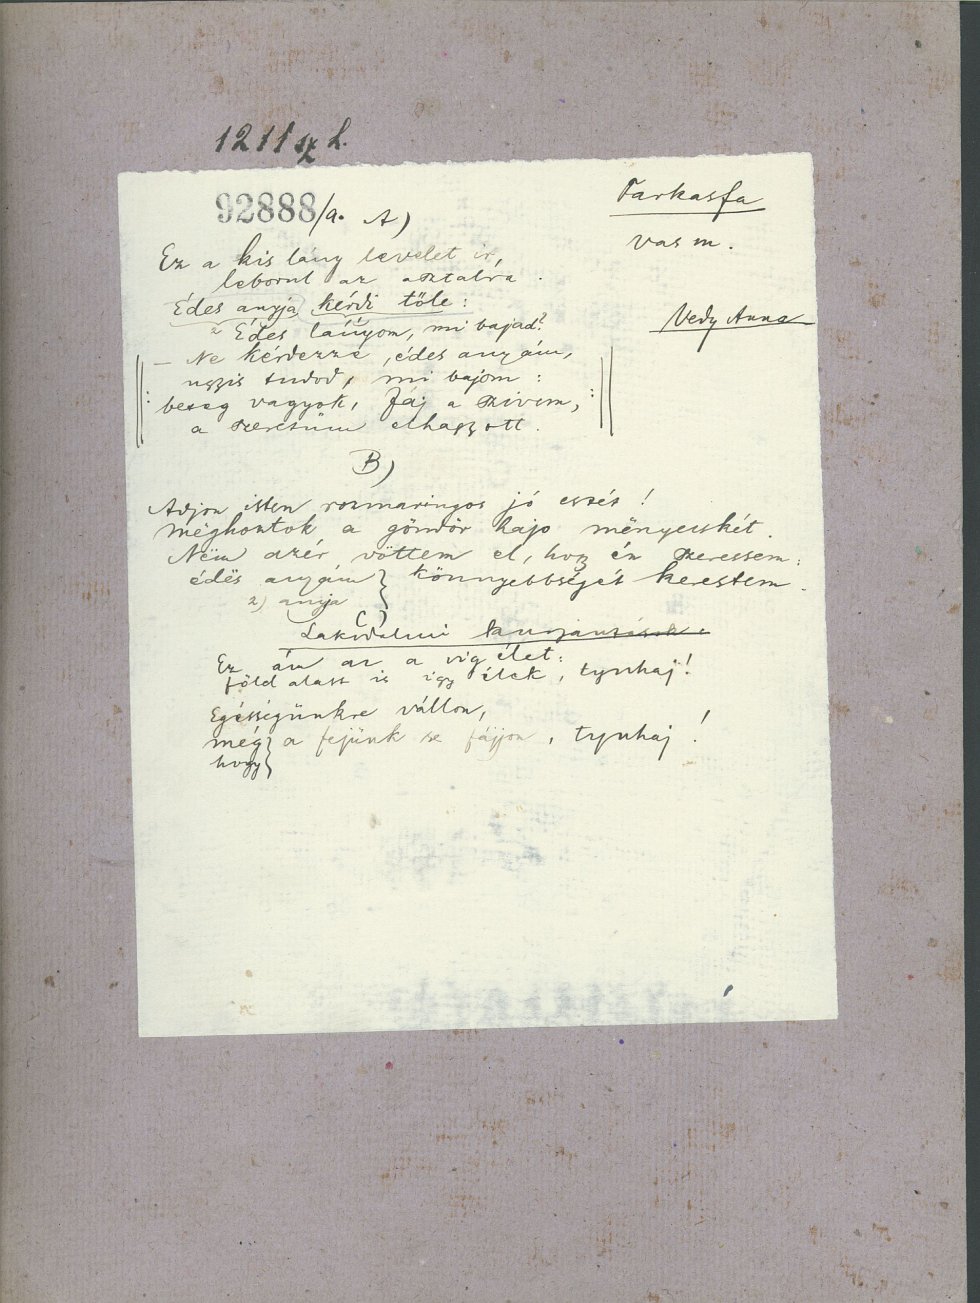 1211 sz h.
92888/a. A)
Farkasfa
vas m.
Ez a kis lány levelet ír,
leborul az asztalra.
Édes anyja kérdi tőle:
2 Édes lányom, mi bajad?
Vedy Anna
— Ne kérdezze, édes anyám,
ugyis tudod, mi bajom:
beteg vagyok, fáj a szivem,
a szeretőm elhagyott.
B)
Adjon isten rozmaringos jó estét!
Mëghoztok a göndör hajo mënyecskét.
Nëm azér vöttem el, hogy én szeressem:
édës anyám } könnyebbségét kerestem.
2) anyja
C)
Lakodalmi
Ez ám az a vig élet:
föld alatt is igy élek, tyuhaj!
Egésségünkre vállon,
még } a fejünk se fájjon, tyuhaj!
hogy }